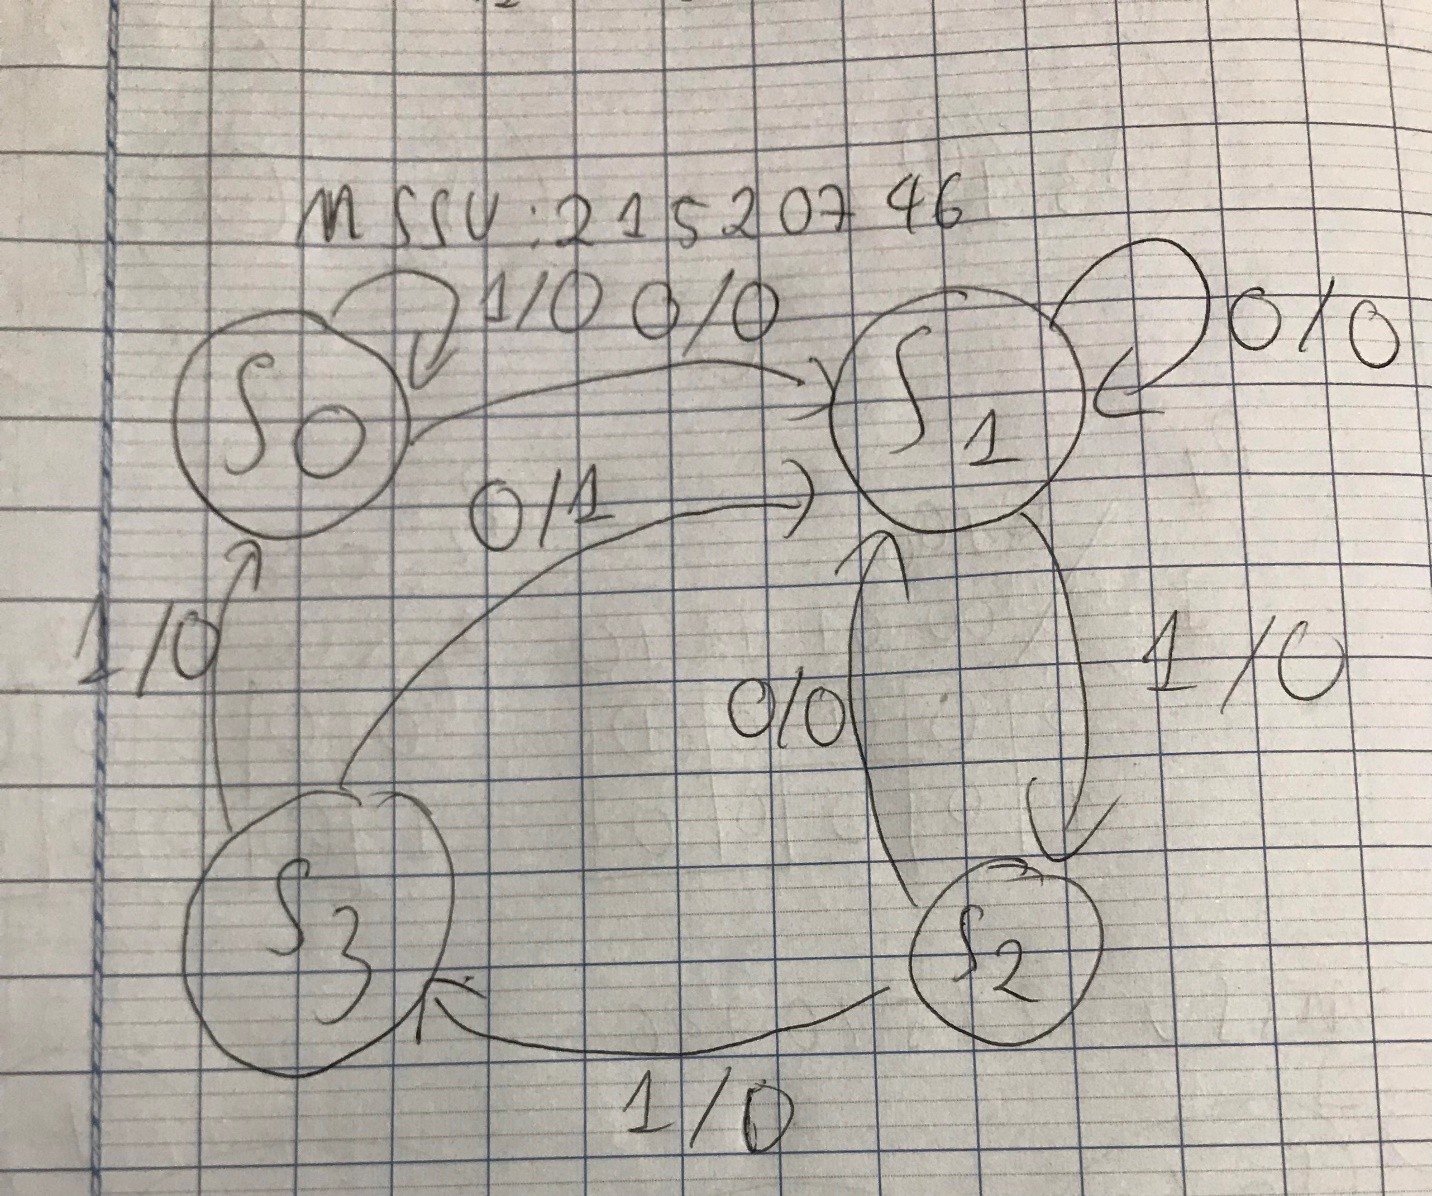 MSSV:21520746
1/0 0/0
0/0
S0
S1
0/1
1/0
0/0
1/0
S3
S2
1/0